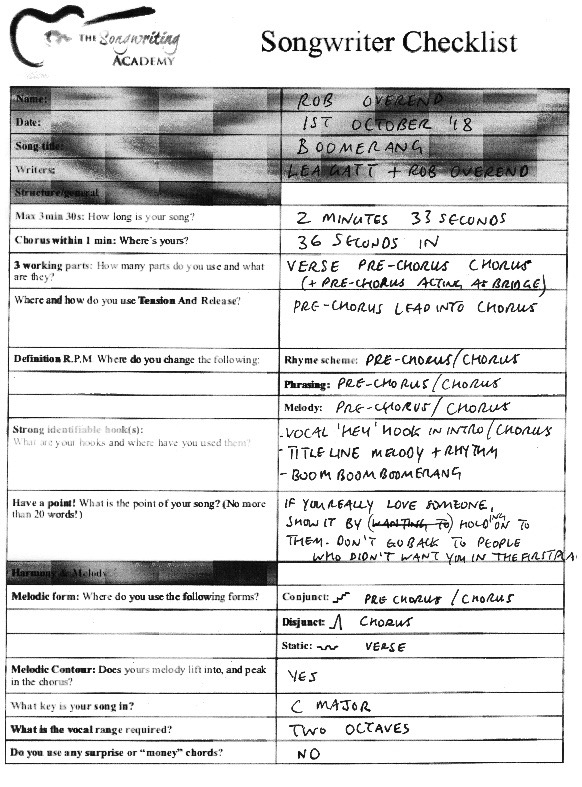 THE Songwriting
ACADEMY
Songwriter Checklist
Name: ROB OVEREND
Date: 1ST OCTOBER '18
Song title: BOOMERANG
Writers: LEA GATT + ROB OVEREND
Structure/general
Max 3min 30s: How long is your song? 2 MINUTES 33 SECONDS
Chorus within 1 min: Where's yours? 36 SECONDS IN
3 working parts: How many parts do you use and what
are they?
VERSE PRE-CHORUS CHORUS
(+ PRE-CHORUS ACTING AS BRIDGE)
Where and how do you use Tension And Release? PRE-CHORUS LEAD INTO CHORUS
Definition R.P.M Where do you change the following: Rhyme scheme: PRE-CHORUS/CHORUS
Phrasing: PRE-CHORUS/CHORUS
Melody: PRE-CHORUS/CHORUS
Strong identifiable hook(s):
What are your hooks and where have you used them?
- VOCAL 'HEY' HOOK IN INTRO/CHORUS
- TITLE LINE MELODY + RHYTHM
- BOOM BOOM BOOMERANG
Have a point! What is the point of your song? (No more
than 20 words!)
IF YOU REALLY LOVE SOMEONE,
SHOW IT BY (WANTING TO) HOLDING ON TO
THEM. DON'T GO BACK TO PEOPLE
WHO DIDN'T WANT YOU IN THE FIRST PLA
Harmony & Melody:
Melodic form: Where do you use the following forms? Conjunct: PRE CHORUS / CHORUS
Disjunct: CHORUS
Static: VERSE
Melodic Contour: Does yours melody lift into, and peak
in the chorus?
YES
What key is your song in? C MAJOR
What is the vocal range required? TWO OCTAVES
Do you use any surprise or "money" chords? NO